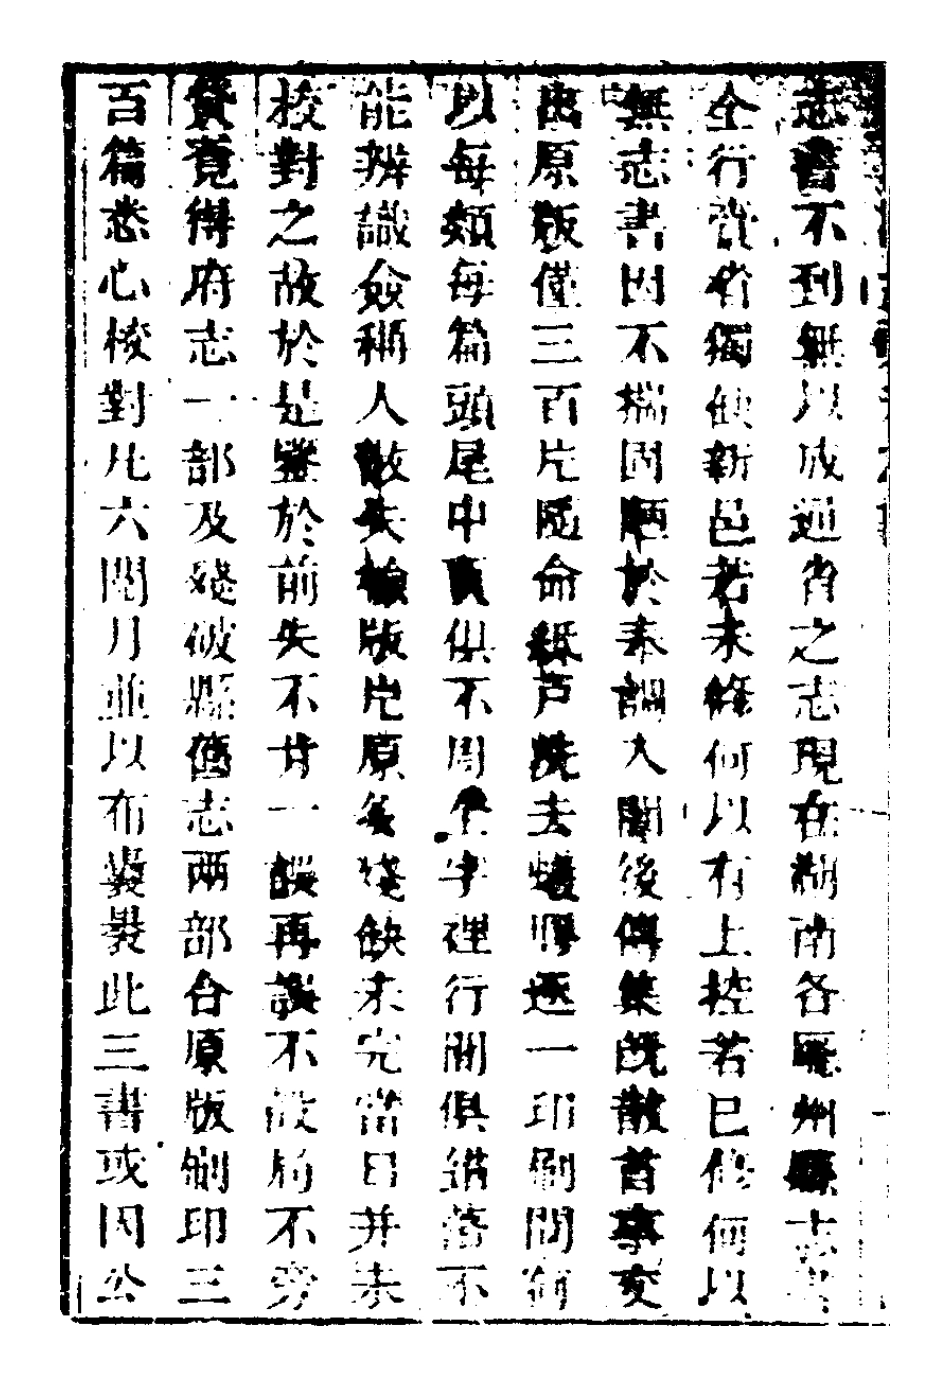 志書不到無以成通省之志現在湖南各廳州縣志書
全行齎省獨缺新邑若未修何以有上控若已修何以
無志書因不揣固陋於奉調入闈後傳集既散首事交
出原版僅三百片隨命紙戶洗去蟻糞逐一印刷間有
以每類每篇頭尾中頁俱不周全字裡行間俱錯落不
能辨識僉稱人散失檢版片原多殘缺未完當日并未
校對之故於是鑒於前失不甘一誤再誤不設局不旁
貸竟得府志一部及殘破縣舊志兩部合原版刷印三
百篇悉心校對凡六閱月並以布囊裝此三書或因公